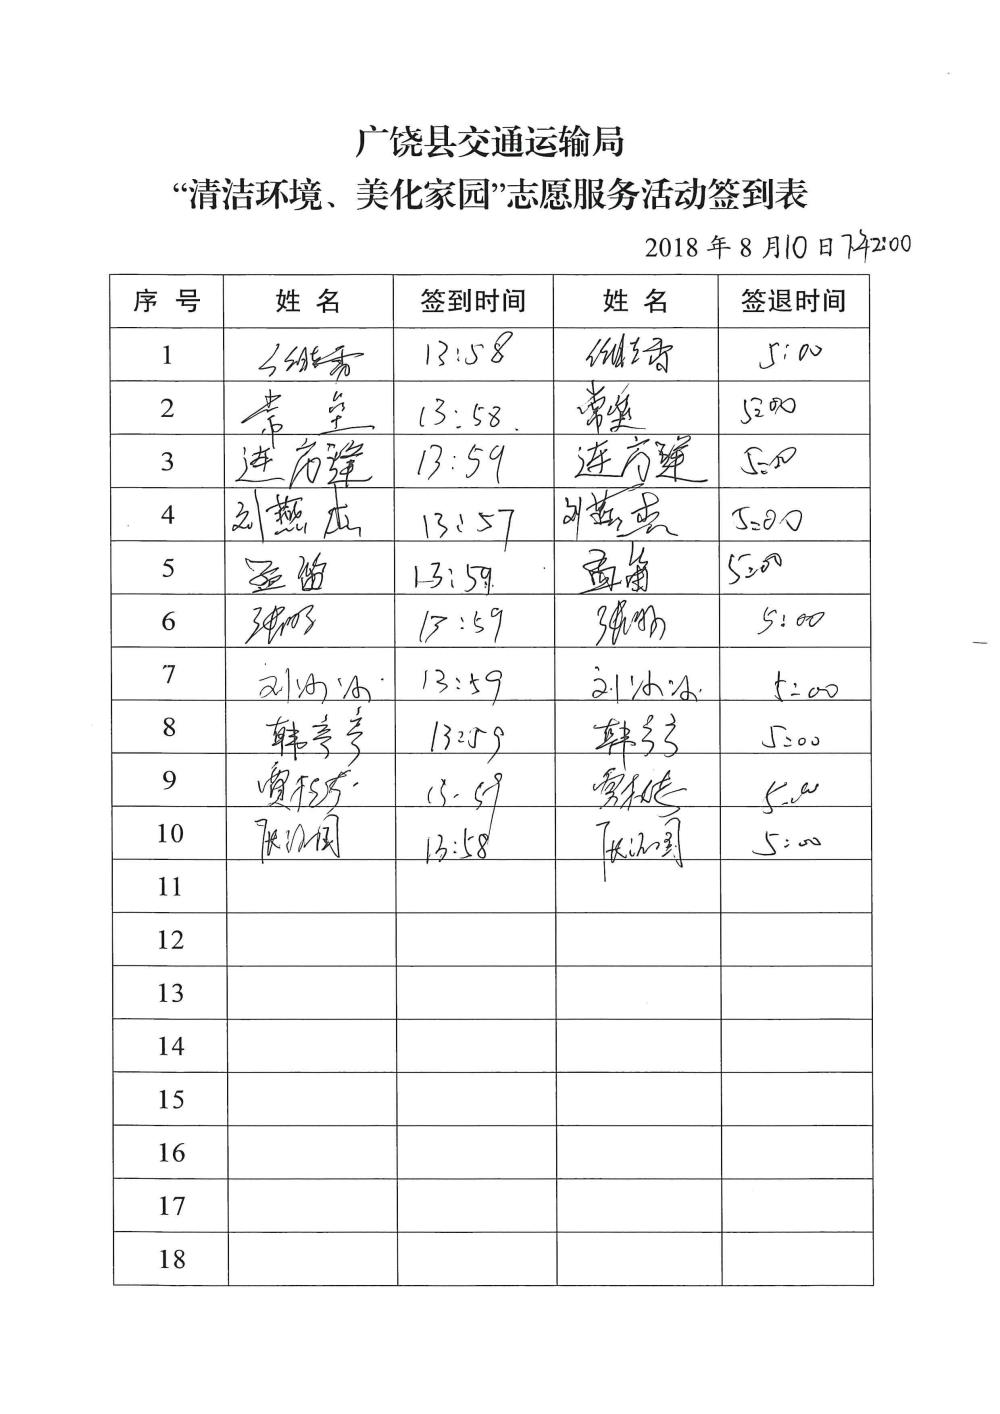 广饶县交通运输局
“清洁环境、美化家园”志愿服务活动签到表
2018 年 8 月10日下午2:00
序 号 姓 名 签到时间 姓 名 签退时间
1 13:58 5:00
2 常 13:58. 常 5:00
3 连方 13:59 连方 5:00
4 刘燕杰 13:57 刘燕杰 5:00
5 孟笛 13:59. 孟笛 5:00
6 张明 13:59 张明 5:00
7 刘冰冰 13:59 刘冰冰 5:00
8 韩亭亭 13:59 韩亭亭 5:00
9 贾 13:59 贾 5:00
10 国 13:58 国 5:00
11
12
13
14
15
16
17
18